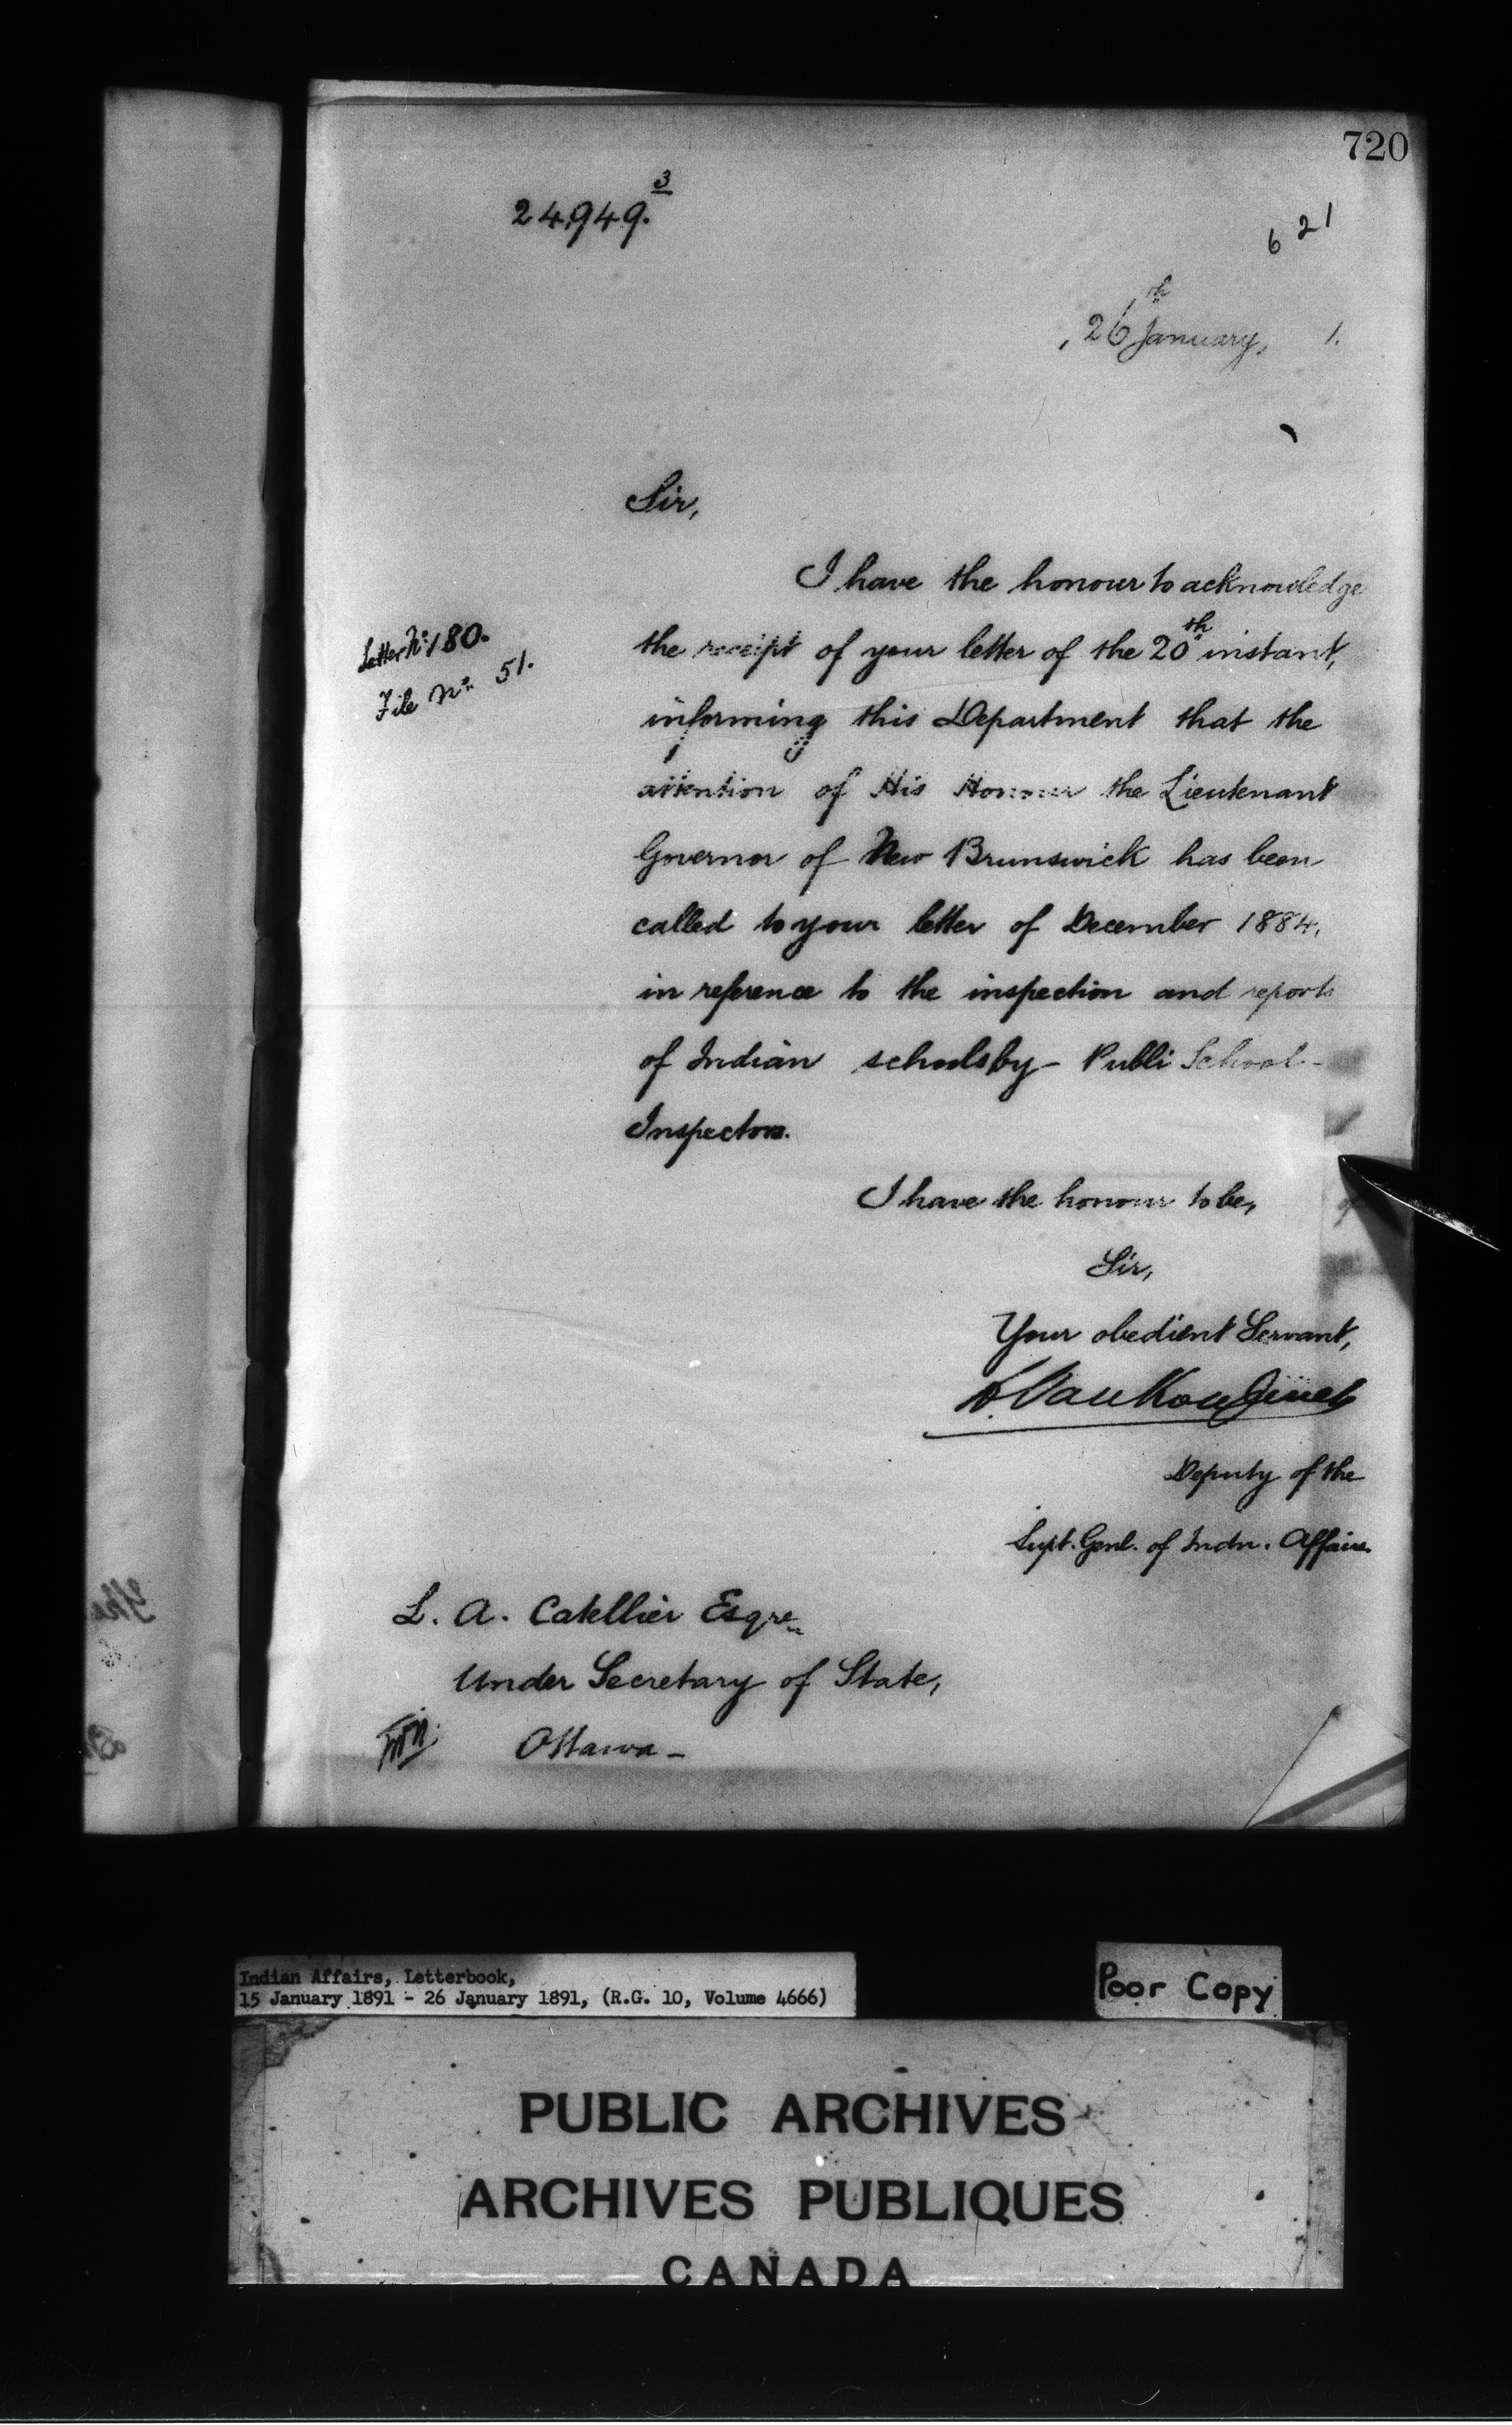 720
24,949.3
621
26th January, 1.
Sir,
I have the honour to acknowledge
Letter No: 180.
the receipt of your letter of the 20th instant,
File No: 51.
informing this Department that the
attention of His Honour the Lieutenant
Governor of New Brunswick has been
called to your letter of December 1884,
in reference to the inspection and reports
of Indian schools by - Publi School -
Inspectors.
I have the honour to be,
Sir,
Your obedient Servant,
L. VanKoughnet
Deputy of the
Supt. Genl. of Indn. Affairs.
L. A. Catellier Esqre
Under Secretary of State,
Ottawa -
Indian Affairs, Letterbook,
15 January 1891 - 26 January 1891, (R.G. 10, Volume 4666)
Poor Copy
PUBLIC ARCHIVES
ARCHIVES PUBLIQUES
CANADA